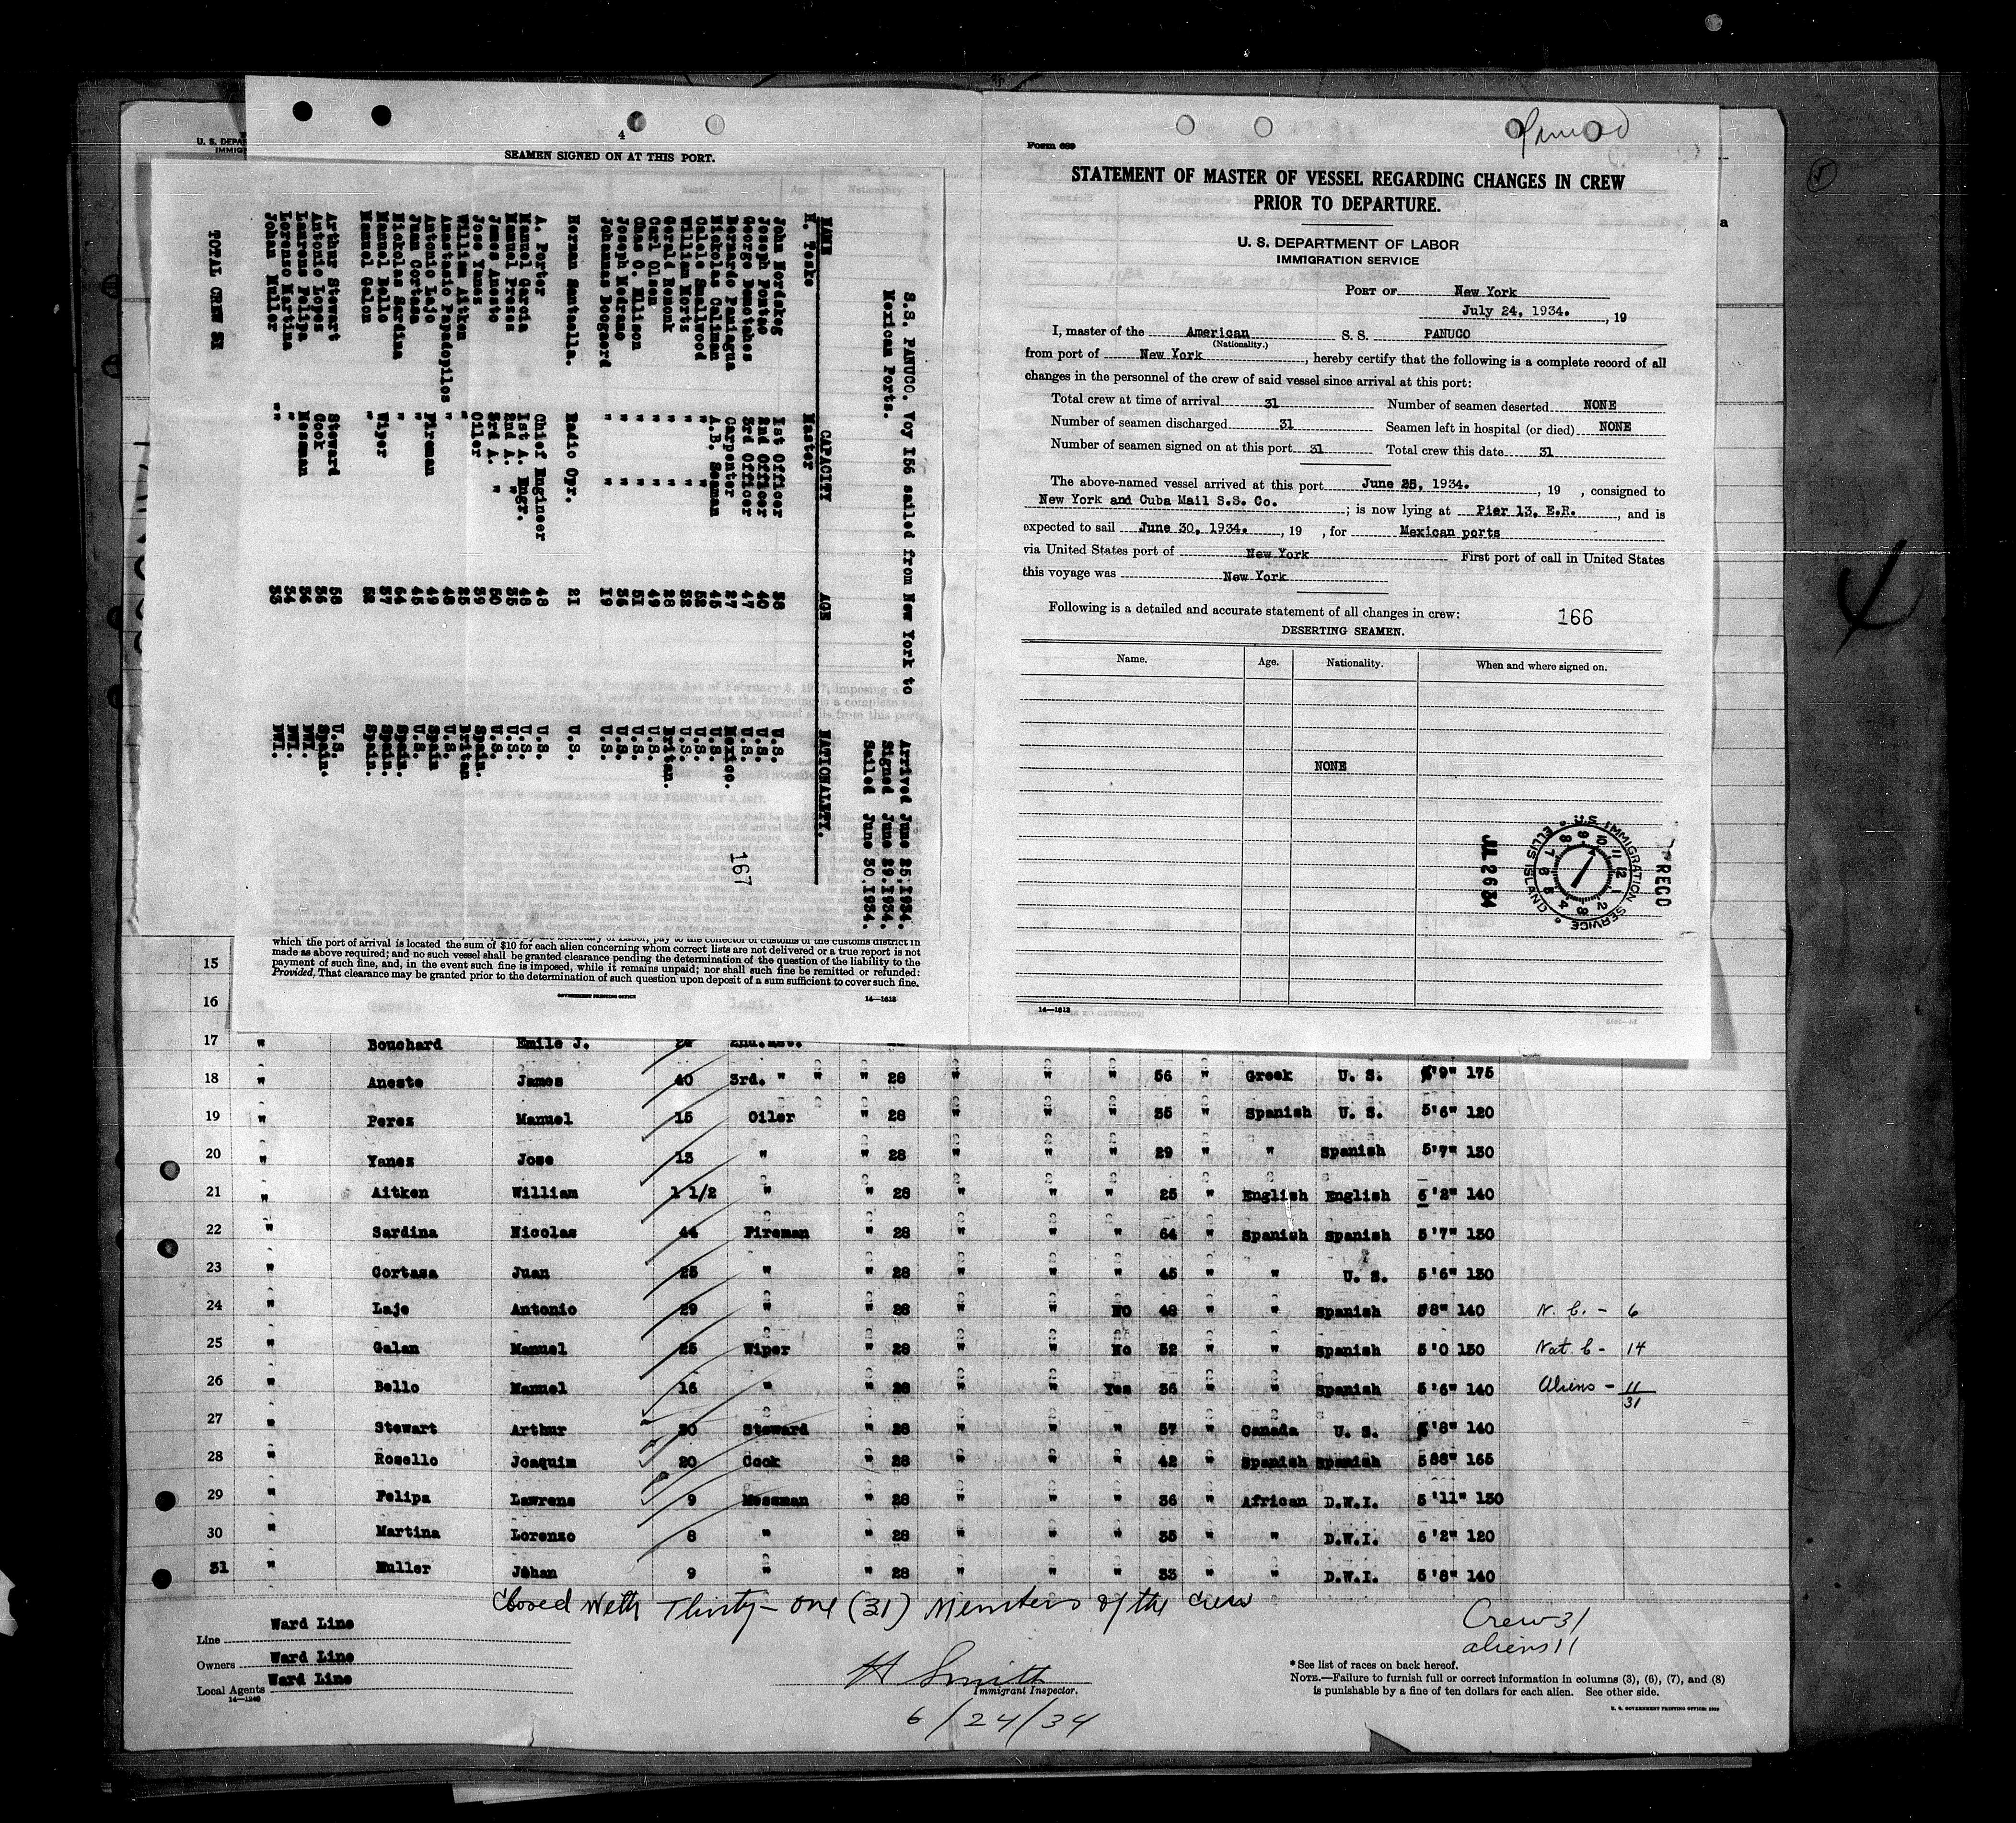 U. S. DEPA
IMMIG
4
SEAMEN SIGNED ON AT THIS PORT.
S.S. PANUCO. Voy 156 sailed from New York to
Mexican Ports.
Arrived June 25.1934.
Signed June 29.1934.
Sailed June 30.1934.
NAME CAPACITY AGE NATIONALITY.
H. Teske Master
John Nordskog 1st Officer 38 U.S.
Joseph Pontac 2nd Officer 40 U.S.
George Demotakes 3rd Officer 47 U.S.
Bernardo Paniagua Carpenter 27 Mexico.
Nickolas Caliman A.B. Seaman 45 U.S.
Calele Smallwood " " 52 U.S.
William Morts " " 32 U.S.
Gerald Remonk " " 28 Britan.
Carl Olsen " " 49 U.S.
Chas O. Ellison " " 51 U.S.
Joseph Medrano " " 36 U.S.
Johannas Boogaerd " " 19 U.S.
Herman Santuella. Radio Opr. 21 U.S.
A. Porter Chief Engineer 48 U.S.
Manuel Garcia 1st A. Engr. 48 U.S.
Manuel Prezes 2nd A. " 35 U.S.
James Anesto 3rd A. " 50 U.S.
Jose Yanes Oiler 39 Spain.
William Aitken " 25 Britan
Anastasio Papadopilos " 48 U.S.
Antonio Lajo Fireman 49 Spain
Juan Cortasa " 45 U.S.
Nickolas Sardina " 64 Spain.
Manuel Bello Wiper 37 Spain.
Manuel Galon " 52 Spain.
Arthur Stewart Steward 58 U.S.
Antonio Lopes Cook 36 Spain.
Laurens Felipa Messman 36 DWI.
Lorenso Martina " 34 DWI.
Johan Muller " 33 DWI.
TOTAL CREW 31
167
which the port of arrival is located the sum of $10 for each alien concerning whom correct lists are not delivered or a true report is not
made as above required; and no such vessel shall be granted clearance pending the determination of the question of the liability to the
payment of such fine, and, in the event such fine is imposed, while it remains unpaid; nor shall such fine be remitted or refunded:
Provided, That clearance may be granted prior to the determination of such question upon deposit of a sum sufficient to cover such fine.
GOVERNMENT PRINTING OFFICE 14—1613
Panuco
Form 689
STATEMENT OF MASTER OF VESSEL REGARDING CHANGES IN CREW
PRIOR TO DEPARTURE.
U. S. DEPARTMENT OF LABOR
IMMIGRATION SERVICE
PORT OF New York
July 24, 1934. , 19
I, master of the American S. S. PANUCO
(Nationality.)
from port of New York , hereby certify that the following is a complete record of all
changes in the personnel of the crew of said vessel since arrival at this port:
Total crew at time of arrival 31 Number of seamen deserted NONE
Number of seamen discharged 31 Seamen left in hospital (or died) NONE
Number of seamen signed on at this port 31 Total crew this date 31
The above-named vessel arrived at this port June 25, 1934. , 19 , consigned to
New York and Cuba Mail S.S. Co. ; is now lying at Pier 13, E.R. , and is
expected to sail June 30, 1934. , 19 , for Mexican ports
via United States port of New York First port of call in United States
this voyage was New York
Following is a detailed and accurate statement of all changes in crew: 166
DESERTING SEAMEN.
Name. Age. Nationality. When and where signed on.
NONE
RECD
U.S. IMMIGRATION SERVICE ELLIS ISLAND
JUL 26 34
14—1613
15
16
17 " Bouchard Emile J.
18 " Aneste James 40 3rd. " " " 28 " " " 56 " Greek U. S. 5'9" 175
19 " Perez Manuel 15 Oiler " 28 " " " 35 " Spanish U. S. 5'6" 120
20 " Yanez Jose 13 " " 28 " " " 29 " " Spanish 5'7" 130
21 " Aitken William 1 1/2 " " 28 " " " 25 " English English 6'2" 140
22 " Sardina Nicolas 44 Fireman " 28 " " " 64 " Spanish Spanish 5'7" 130
23 " Cortasa Juan 25 " " 28 " " " 45 " " U. S. 5'6" 130
24 " Laje Antonio 29 " " 28 " " NO 48 " " Spanish 5 8" 140 N. C. - 6
25 " Galan Manuel 25 Wiper " 28 " " No 52 " " Spanish 5'0 130 Nat. C - 14
26 " Bello Manuel 16 " " 28 " " Yes 36 " " Spanish 5'6" 140 Aliens - 11
31
27 " Stewart Arthur 30 Steward " 28 " " " 57 " Canada U. S. 5'8" 140
28 " Rosello Joaquim 20 Cook " 28 " " " 42 " Spanish Spanish 5 88" 165
29 " Felipa Lawrens 9 Messman " 28 " " " 36 " African D.W.I. 5'11" 130
30 " Martina Lorenzo 8 " " 28 " " " 35 " " D.W.I. 6'2" 120
31 " Muller Johan 9 " " 28 " " " 33 " " D.W.I. 5'8" 140
Closed With Thirty-one (31) Members of the crew
Crew 31
aliens 11
Line Ward Line
Owners Ward Line
Local Agents Ward Line
14—1240
H Smith
Immigrant Inspector.
6/24/34
* See list of races on back hereof.
NOTE.—Failure to furnish full or correct information in columns (3), (6), (7), and (8)
is punishable by a fine of ten dollars for each alien. See other side.
U. S. GOVERNMENT PRINTING OFFICE: 1929